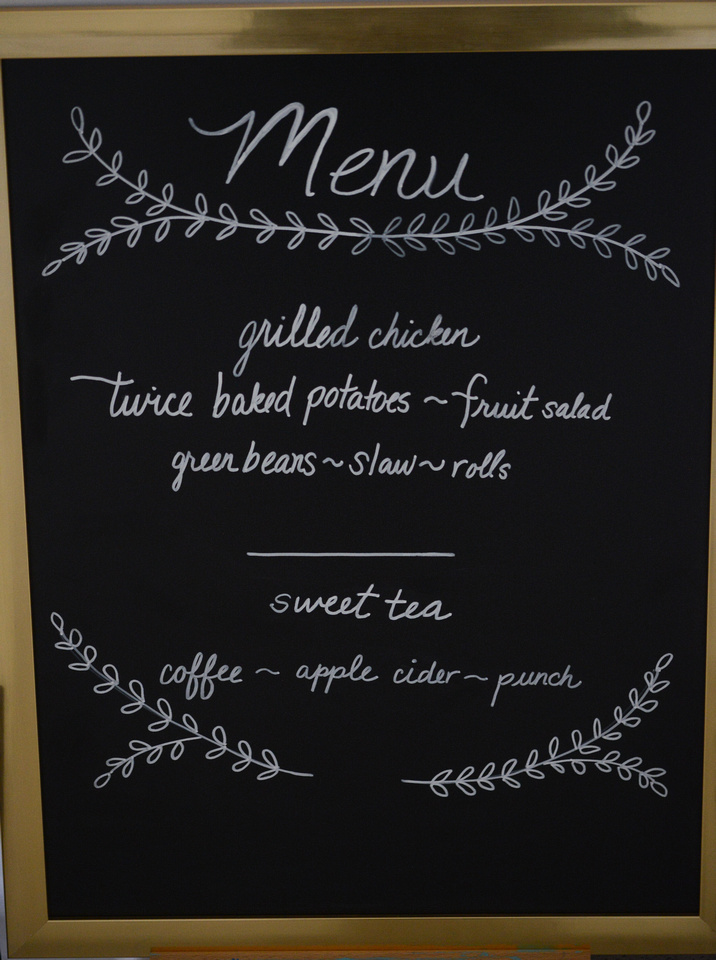 Menu
grilled chicken
twice baked potatoes ~ fruit salad
green beans ~ slaw ~ rolls
sweet tea
coffee ~ apple cider ~ punch